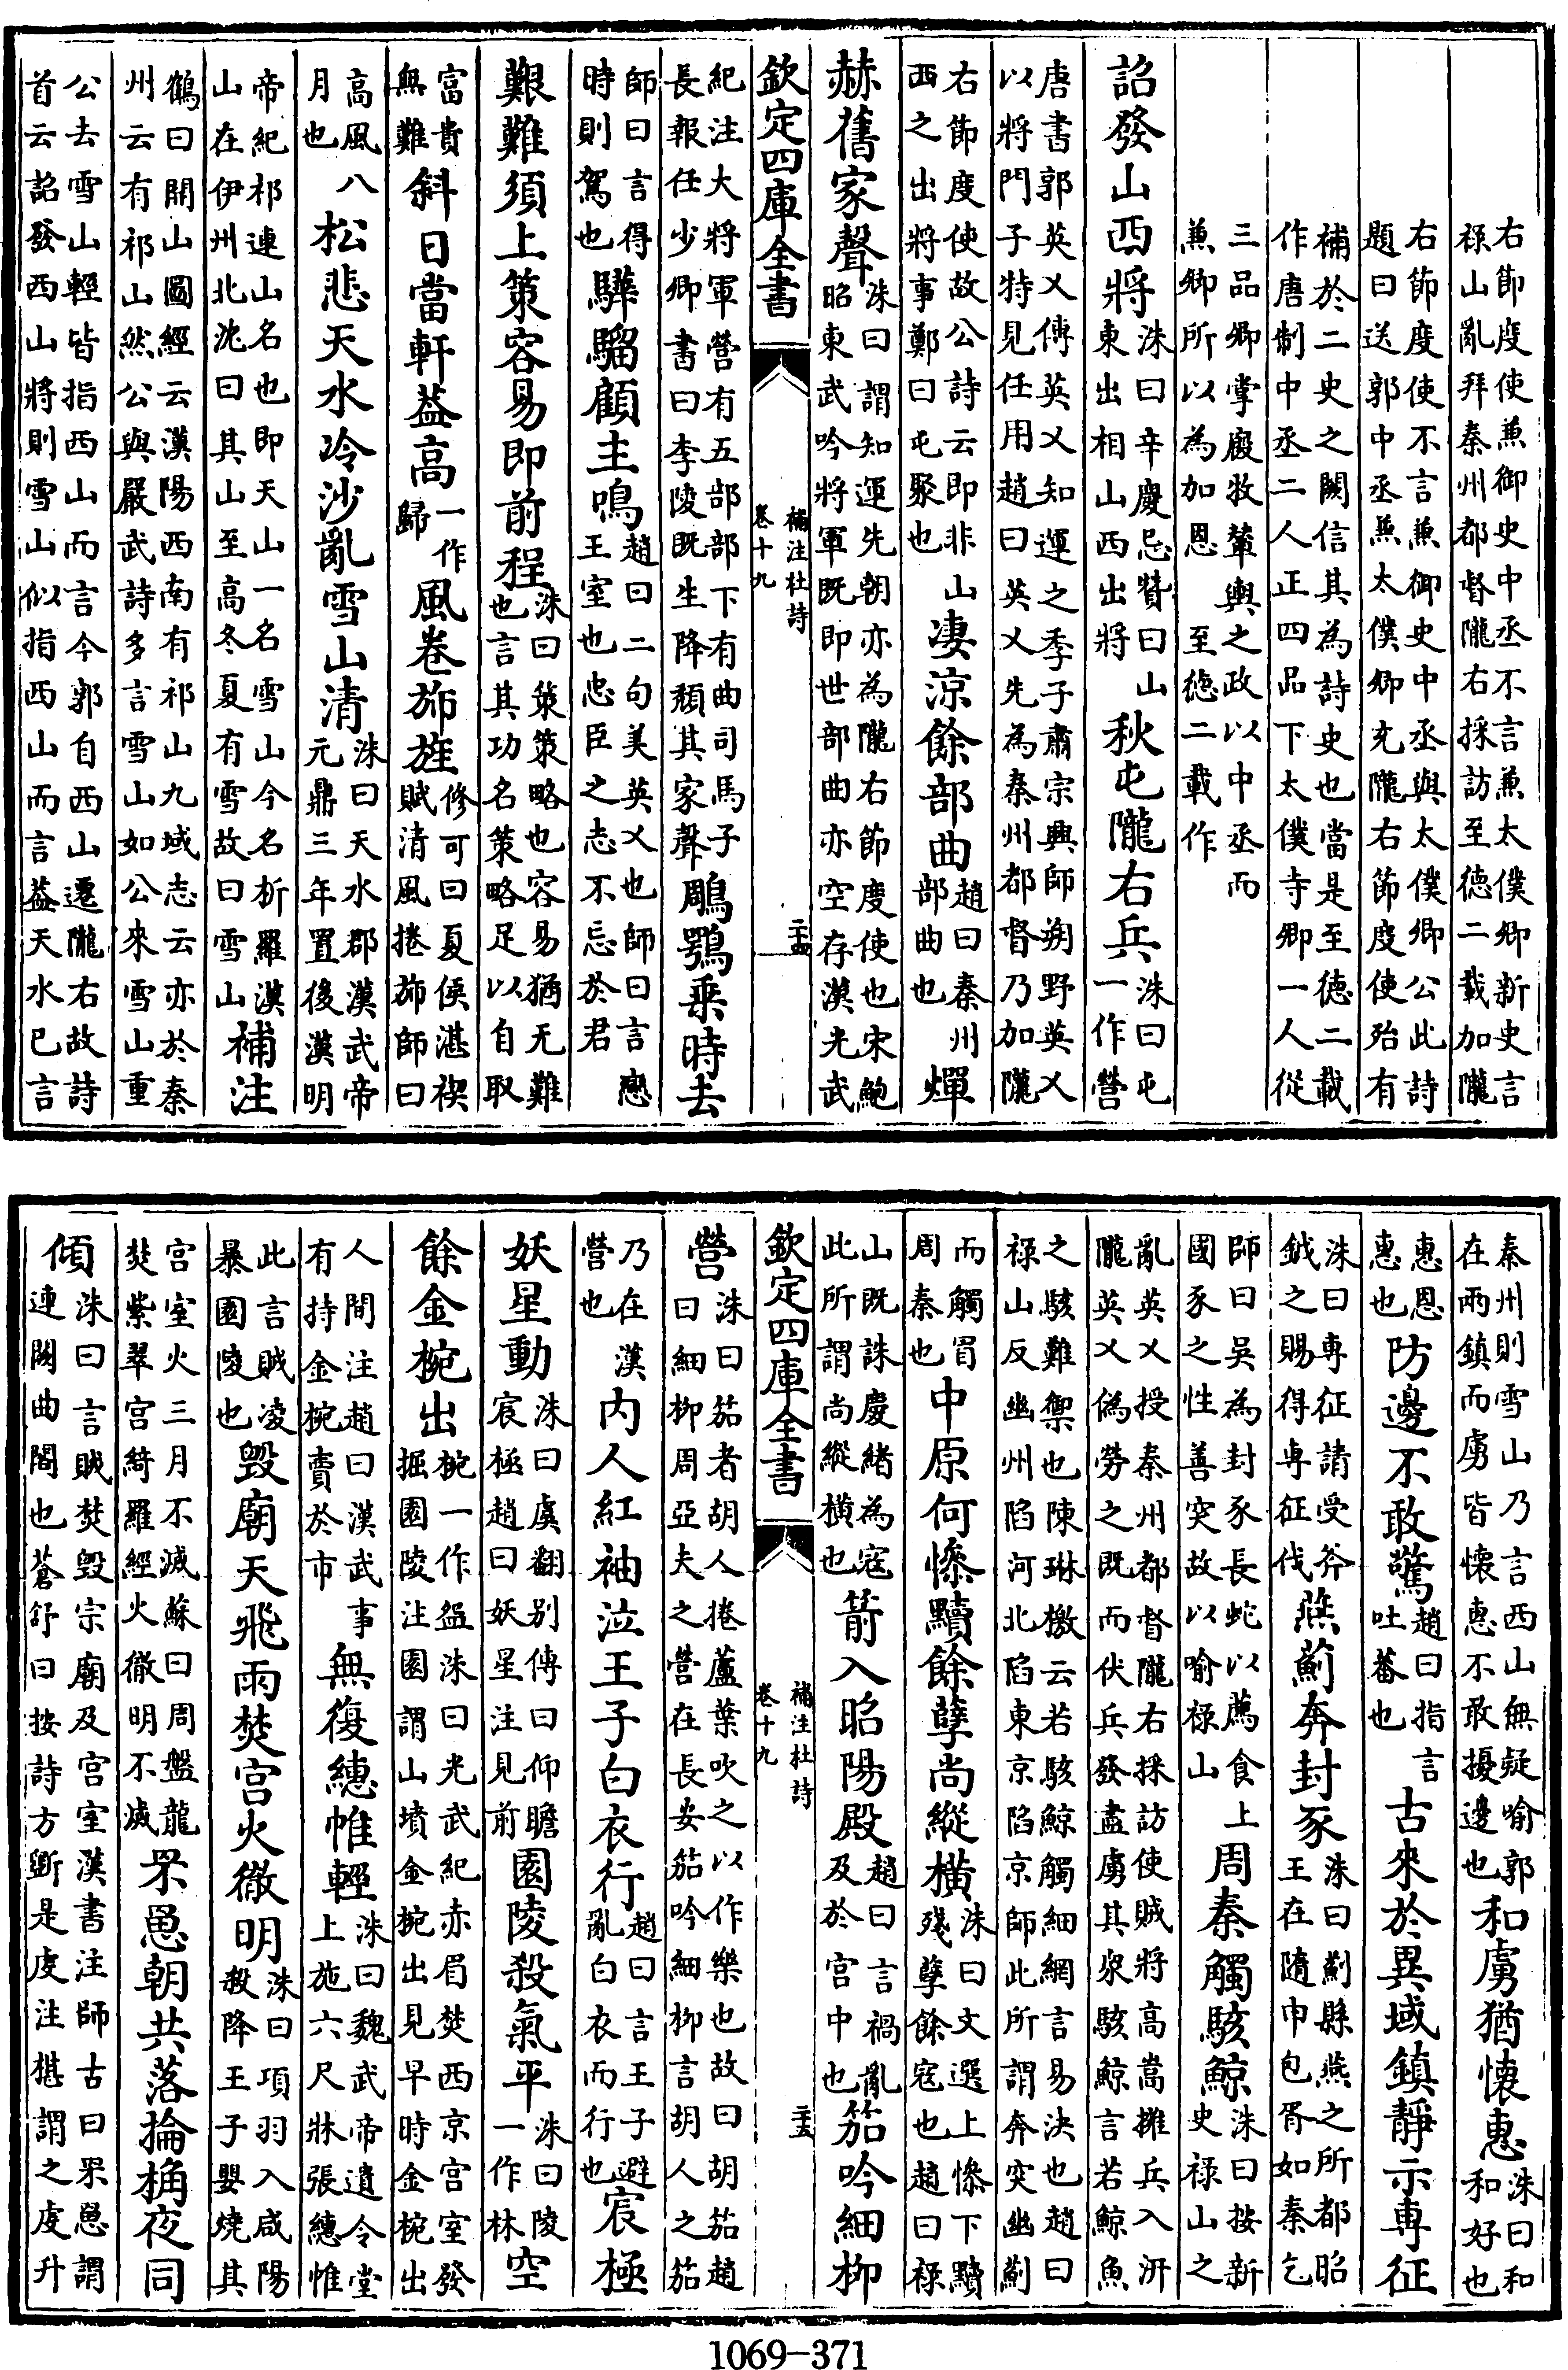 右節度使兼御史中丞不言兼太僕卿新史言
祿山亂拜秦州都督隴右採訪至德二載加隴
右節度使不言兼御史中丞與太僕卿公此詩
題曰送郭中丞兼太僕卿充隴右節度使殆有
補於二史之闕信其為詩史也當是至德二載
作唐制中丞二人正四品下太僕寺卿一人從
三品卿掌廄牧輦輿之政以中丞而
兼卿所以為加恩 至德二載作
詔發山西將洙曰辛慶忌贊曰山東出相山西出將秋屯隴右兵洙曰屯一作營
唐書郭英乂傳英乂知運之季子肅宗興師朔野英乂
以將門子特見任用趙曰英乂先為秦州都督乃加隴
右節度使故公詩云即非山西之出將事鄭曰屯聚也淒涼餘部曲趙曰秦州部曲也燀
赫舊家聲洙曰謂知運先朝亦為隴右節度使也宋鮑昭東武吟將軍既即世部曲亦空存漢光武
欽定四庫全書 補注杜詩 卷十九 二十四
紀注大將軍營有五部部下有曲司馬子長報任少卿書曰李陵既生降頹其家聲鵰鶚乘時去
師曰言得時則駕也驊騮顧主鳴趙曰二句美英乂也師曰言戀王室也忠臣之志不忘於君
艱難須上策容易即前程洙曰策策略也容易猶无難也言其功名策略足以自取
富貴無難斜日當軒葢高一作歸風卷旆旌修可曰夏侯湛禊賦清風捲旆師曰
高風八月也松悲天水冷沙亂雪山清洙曰天水郡漢武帝元鼎三年置後漢明
帝紀祁連山名也即天山一名雪山今名析羅漢山在伊州北沈曰其山至高冬夏有雪故曰雪山補注
鶴曰開山圖經云漢陽西南有祁山九域志云亦於秦
州云有祁山然公與嚴武詩多言雪山如公來雪山重
公去雪山輕皆指西山而言今郭自西山遷隴右故詩
首云詔發西山將則雪山似指西山而言葢天水已言
秦州則雪山乃言西山無疑喻郭在兩鎮而虜皆懷惠不敢擾邊也和虜猶懷惠洙曰和和好也
惠恩惠也防邊不敢驚趙曰指言吐蕃也古來於異域鎮靜示專征
洙曰專征請受斧鉞之賜得專征伐燕薊奔封豕洙曰薊縣燕之所都昭王在隨申包胥如秦乞
師曰吳為封豕長蛇以薦食上國豕之性善突故以喻祿山周秦觸駭鯨洙曰按新史祿山之
亂英乂授秦州都督隴右採訪使賊將高嵩擁兵入汧
隴英乂偽勞之既而伏兵發盡虜其眾駭鯨言若鯨魚
之駭難禦也陳琳檄云若駭鯨觸細網言易決也趙曰
祿山反幽州陷河北陷東京陷京師此所謂奔突幽薊
而觸罥周秦也中原何慘黷餘孽尚縱橫洙曰文選上慘下黷殘孽餘寇也趙曰祿
山既誅慶緒為寇此所謂尚縱橫也箭入昭陽殿趙曰言禍亂及於宮中也笳吟細柳
欽定四庫全書 補注杜詩 卷十九 二十五
營洙曰笳者胡人捲蘆葉吹之以作樂也故曰胡笳趙曰細柳周亞夫之營在長安笳吟細柳言胡人之笳
乃在漢營也內人紅袖泣王子白衣行趙曰言王子避亂白衣而行也宸極
妖星動洙曰虞翻別傳曰仰瞻宸極趙曰妖星注見前園陵殺氣平洙曰陵一作林空
餘金椀出椀一作盌洙曰光武紀赤眉焚西京宮室發掘園陵注園謂山墳金椀出見早時金椀出
人間注趙曰漢武事有持金椀賣於市無復繐帷輕洙曰魏武帝遺令堂上施六尺牀張繐帷
此言賊凌暴園陵也毀廟天飛雨焚宮火徹明洙曰項羽入咸陽殺降王子嬰燒其
宮室火三月不滅蘇曰周盤龍焚紫翠宮綺羅經火徹明不滅罘罳朝共落棆桷夜同
傾洙曰言賊焚毀宗廟及宮室漢書注師古曰罘罳謂連闕曲閣也蒼舒曰按詩方斲是虔注椹謂之虔升
1069-371